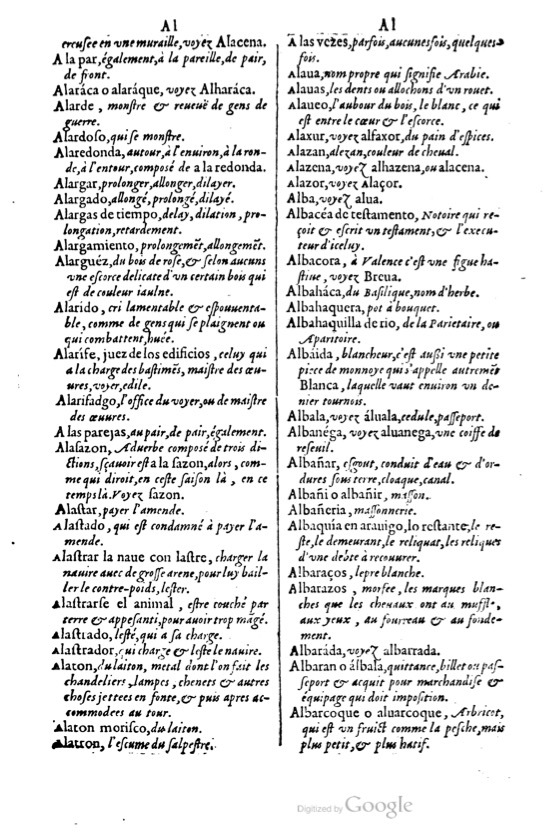 Al
ercusee en vne muraille, voyez Alacena.
A la par, également, à la pareille, de pair,
de front.
Alaráca o alaráque, voyez Alharáca.
Alarde, monstre & reueuë de gens de
guerre.
Alardoso, qui se monstre.
Alaredonda, autour, à l'enuiron, à la ron-
de, à l'entour, composé de a la redonda.
Alargar, prolonger, allonger, dilayer.
Alargado, allongé, prolongé, dilayé.
Alargas de tiempo, delay, dilation, pro-
longation, retardement.
Alargamiento, prolongemẽt, allongemẽt.
Alarguéz, du bois de rose, & selon aucuns
vne escorce delicate d'vn certain bois qui
est de couleur iaulne.
Alarido, cri lamentable & espouuenta-
ble, comme de gens qui se plaignent ou
qui combattent, huée.
Alarífe, juez de los edificios, celuy qui
a la charge des bastimẽs, maistre des œu-
ures, voyer, edile.
Alarifadgo, l'office du voyer, ou de maistre
des œuures.
A las parejas, au pair, de pair, également.
Alasazon, Aduerbe composé de trois di-
ctions, sçauoir est à la sazon, alors, com-
me qui diroit, en ceste saison là, en ce
temps là. Voyez sazon.
Alastar, payer l'amende.
Alastado, qui est condamné à payer l'a-
mende.
Alastrar la naue con lastre, charger la
nauire auec de grosse arene, pour luy bail-
ler le contre-poids, lester.
Alastrarse el animal, estre touché par
terre & appesanti, pour auoir trop mãgé.
Alastrado, lesté, qui a sa charge.
Alastrador, qui charge & leste le nauire.
Alaton, du laiton, metal dont l'on fait les
chandeliers, lampes, chenets & autres
choses jettees en fonte, & puis apres ac-
commodees au tour.
Alaton morisco, du laiton.
Alatron, l'escume du salpestre.
Al
A las vezes, parfois, aucunesfois, quelques-
fois.
Alaua, nom propre qui signifie Arabie.
Alauas, les dents ou allochons d'vn rouet.
Alaueo, l'aubour du bois, le blanc, ce qui
est entre le cœur & l'escorce.
Alaxur, voyez alfaxor, du pain d'espices.
Alazan, alezan, couleur de cheual.
Alazena, voyez alhazena, ou alacena.
Alazor, voyez Alaçor.
Alba, voyez alua.
Albacéa de testamento, Notoire qui re-
çoit & escrit vn testament, & l'execu-
teur d'iceluy.
Albacora, à Valence c'est vne figue ha-
stiue, voyez Breua.
Albaháca, du Basilique, nom d'herbe.
Albahaquera, pot à bouquet.
Albahaquilla de rio, de la Parietaire, ou
Aparitoire.
Albáida, blancheur, c'est aussi vne petite
piece de monnoye qui s'appelle autremẽt
Blanca, laquelle vaut enuiron vn de-
nier tournois.
Albala, voyez áluala, cedule, passeport.
Albanéga, voyez aluanega, vne coiffe de
reseuil.
Albañar, esgout, conduit d'eau & d'or-
dures sous terre, cloaque, canal.
Albañi o albañir, masson.
Albañeria, massonnerie.
Albaquía en arauigo, lo restante, le re-
ste, le demeurant, le reliquat, les reliques
d'vne debte à recouurer.
Albaraços, lepre blanche.
Albarazos, morfee, les marques blan-
ches que les cheuaux ont au muffle,
aux yeux, au fourreau & au fonde-
ment.
Albaráda, voyez albarrada.
Albaran o álbala, quittance, billet ou pas-
seport & acquit pour marchandise &
équipage qui doit imposition.
Albarcoque o aluarcoque, Arbricot,
qui est vn fruict comme la pesche, mais
plus petit, & plus hatif.
Digitized by Google